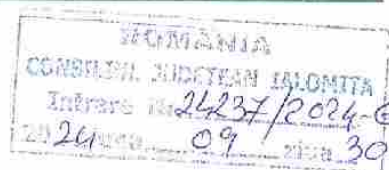 ROMÂNIA
CONSILIUL JUDEŢEAN IALOMIŢA
Intrare Nr. 24237/2024-G
2024 luna 09 ziua 30